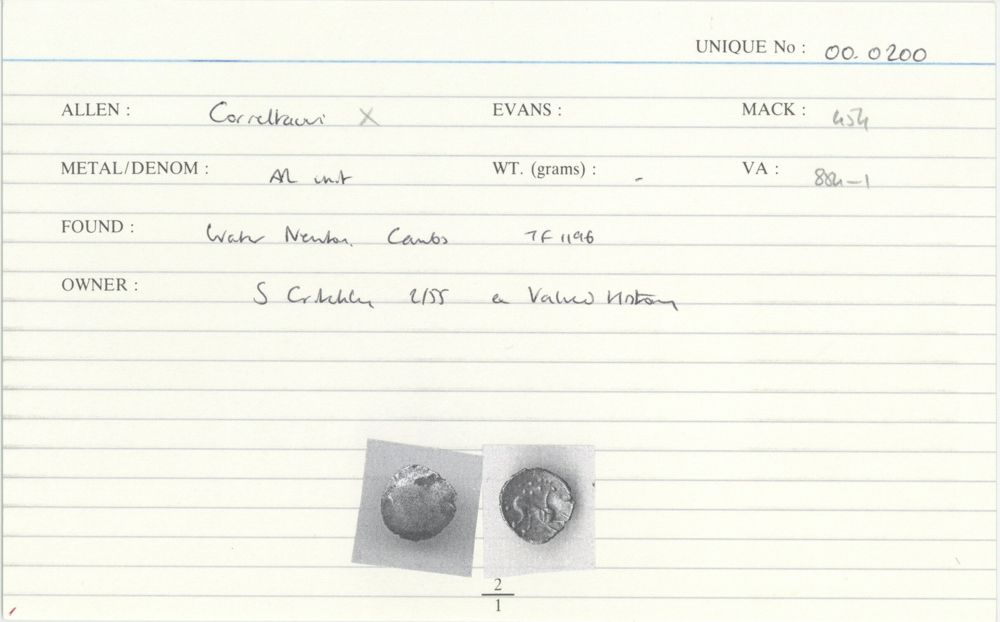 UNIQUE No : 00. 0200
ALLEN : Correltauvi X EVANS : MACK : 454
METAL/DENOM : AR unit WT. (grams) : - VA : 884-1
FOUND : Water Newton, Cambs TF 1196
OWNER : S Critchley 2/55 Valued History
2
1